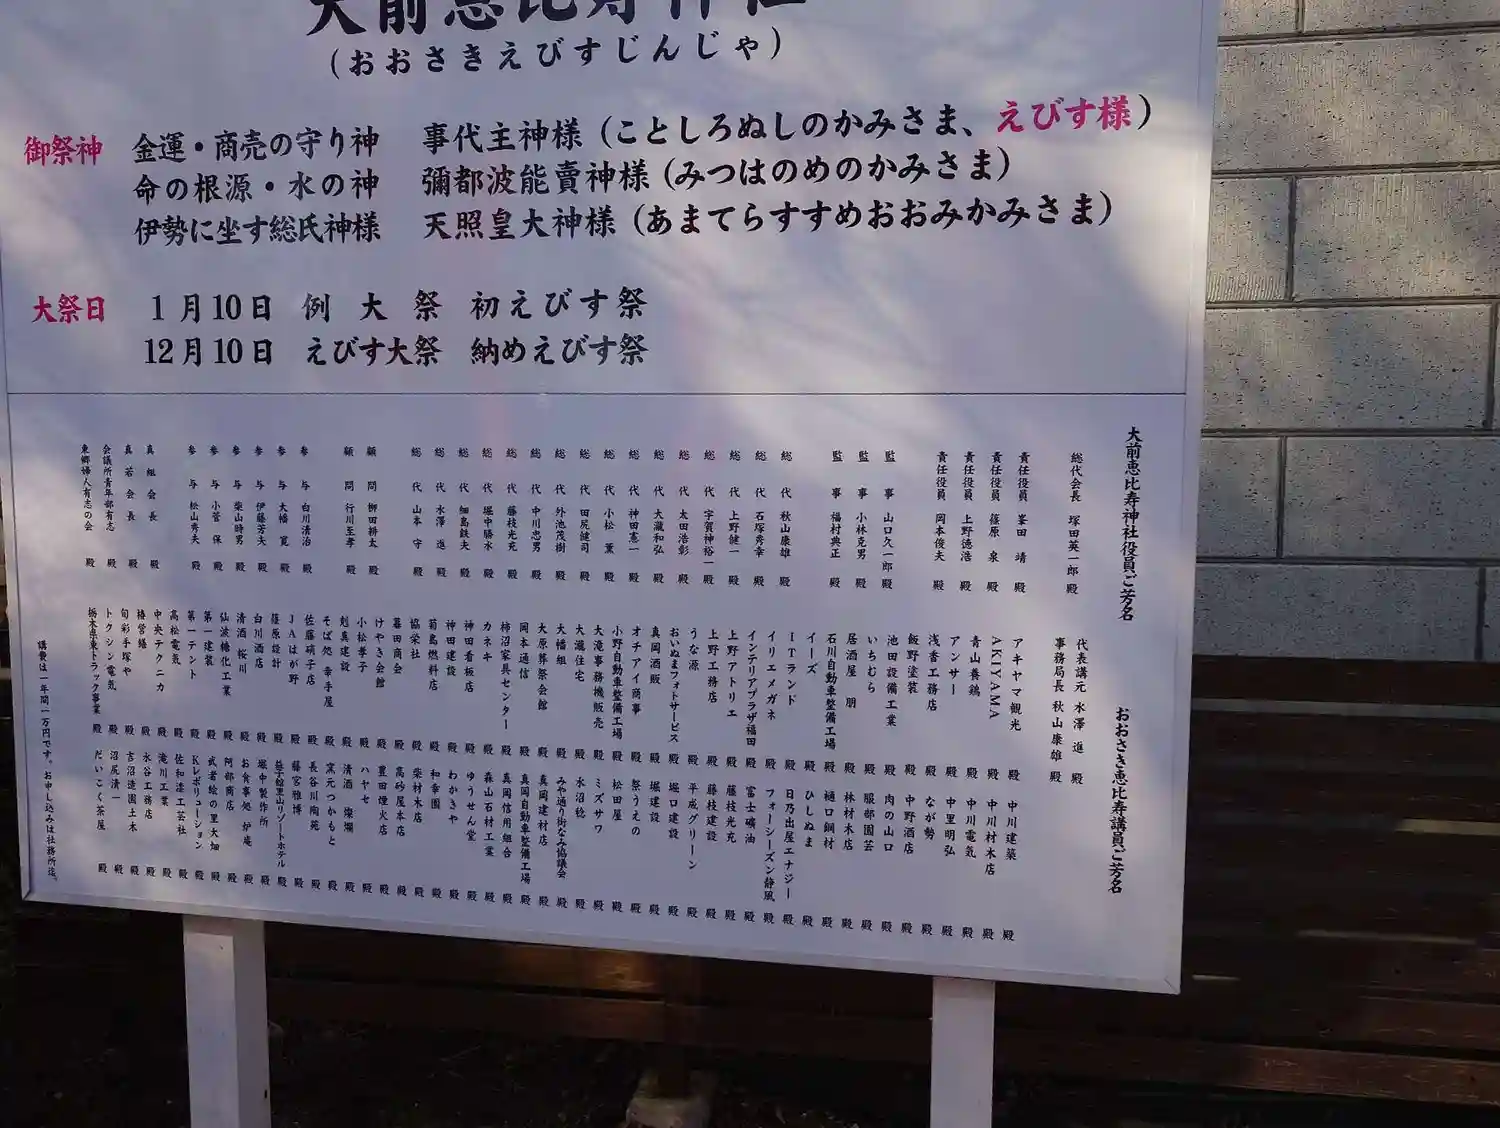 大前恵比寿神社
(おおさきえびすじんじゃ)
御祭神 金運・商売の守り神 事代主神様(ことしろぬしのかみさま、えびす様)
命の根源・水の神 彌都波能賣神様(みつはのめのかみさま)
伊勢に坐す総氏神様 天照皇大神様(あまてらすすめおおみかみさま)
大祭日 1月10日 例大祭 初えびす祭
12月10日 えびす大祭 納めえびす祭
大前恵比寿神社役員ご芳名
総代会長 塚田英一郎 殿
責任役員 峯田 靖 殿
責任役員 篠原 泉 殿
責任役員 上野徳浩 殿
責任役員 岡本俊夫 殿
監事 山口久一郎 殿
監事 小林克男 殿
監事 福村典正 殿
総代 秋山康雄 殿
総代 石塚秀幸 殿
総代 上野健一 殿
総代 宇賀神裕一 殿
総代 太田浩彰 殿
総代 大瀧和弘 殿
総代 神田憲一 殿
総代 小松 薫 殿
総代 田尻健司 殿
総代 外池茂樹 殿
総代 中川忠男 殿
総代 藤枝光充 殿
総代 堀中勝水 殿
総代 細島鉄夫 殿
総代 水澤 進 殿
総代 山本 守 殿
顧問 柳田耕太 殿
顧問 行川至孝 殿
参与 白川清治 殿
参与 大幡 寛 殿
参与 伊藤芳夫 殿
参与 柴山時男 殿
参与 小菅 保 殿
参与 松山秀夫 殿
真組会長 殿
真若会長 殿
会議所青年部有志 殿
東郷婦人有志の会 殿
おおさき恵比寿講員ご芳名
代表講元 水澤 進 殿
事務局長 秋山康雄 殿
アキヤマ観光 殿
AKIYAMA 殿
青山養鶏 殿
アンサー 殿
浅香工務店 殿
飯野塗装 殿
池田設備工業 殿
いちむら 殿
居酒屋 朋 殿
石川自動車整備工場 殿
イーズ 殿
ITランド 殿
イリエメガネ 殿
インテリアプラザ福田 殿
上野アトリエ 殿
上野工務店 殿
うな源 殿
おいぬまフォトサービス 殿
真岡酒販 殿
オチアイ商事 殿
小野自動車整備工場 殿
大滝事務機販売 殿
大瀧住宅 殿
大幡組 殿
大原葬祭会館 殿
岡本通信 殿
柿沼家具センター 殿
カネキ 殿
神田看板店 殿
神田建設 殿
菊島燃料店 殿
協栄社 殿
幕田商会 殿
けやき会館 殿
小松孝子 殿
剋真建設 殿
そば処 幸手屋 殿
佐藤硝子店 殿
JAはが野 殿
篠原設計 殿
白川酒店 殿
清酒 桜川 殿
仙波糖化工業 殿
第一建装 殿
第一テント 殿
高松電気 殿
中央テクニカ 殿
椿営繕 殿
旬彩手塚や 殿
トクシン電気 殿
栃木県東トラック事業 殿
中川建築 殿
中川材木店 殿
中川電気 殿
中里明弘 殿
なが勢 殿
中野酒店 殿
肉の山口 殿
服部園芸 殿
林材木店 殿
樋口鋼材 殿
ひしぬま 殿
日乃出屋エナジー 殿
フォーシーズン静風 殿
富士礦油 殿
藤枝光充 殿
藤枝建設 殿
平成グリーン 殿
堀口建設 殿
堀建設 殿
祭うえの 殿
松田屋 殿
ミズサワ 殿
水沼稔 殿
みや通り街なみ協議会 殿
真岡建材店 殿
真岡自動車整備工場 殿
真岡信用組合 殿
森山石材工業 殿
ゆうせん堂 殿
わかきや 殿
和幸園 殿
柴材木店 殿
高砂屋本店 殿
豊田煙火店 殿
ハヤセ 殿
清酒 燦爛 殿
窯元つかもと 殿
長谷川陶苑 殿
藤宮雅博 殿
益子舘里山リゾートホテル 殿
堀中製作所 殿
お食事処 炉庵 殿
阿部商店 殿
武者絵の里大畑 殿
Kレボリューション 殿
佐和漆工芸社 殿
滝川工業 殿
水谷工務店 殿
吉沼造園土木 殿
沼尻清一 殿
だいこく茶屋 殿
講費は一年間一万円です。お申し込みは社務所迄。